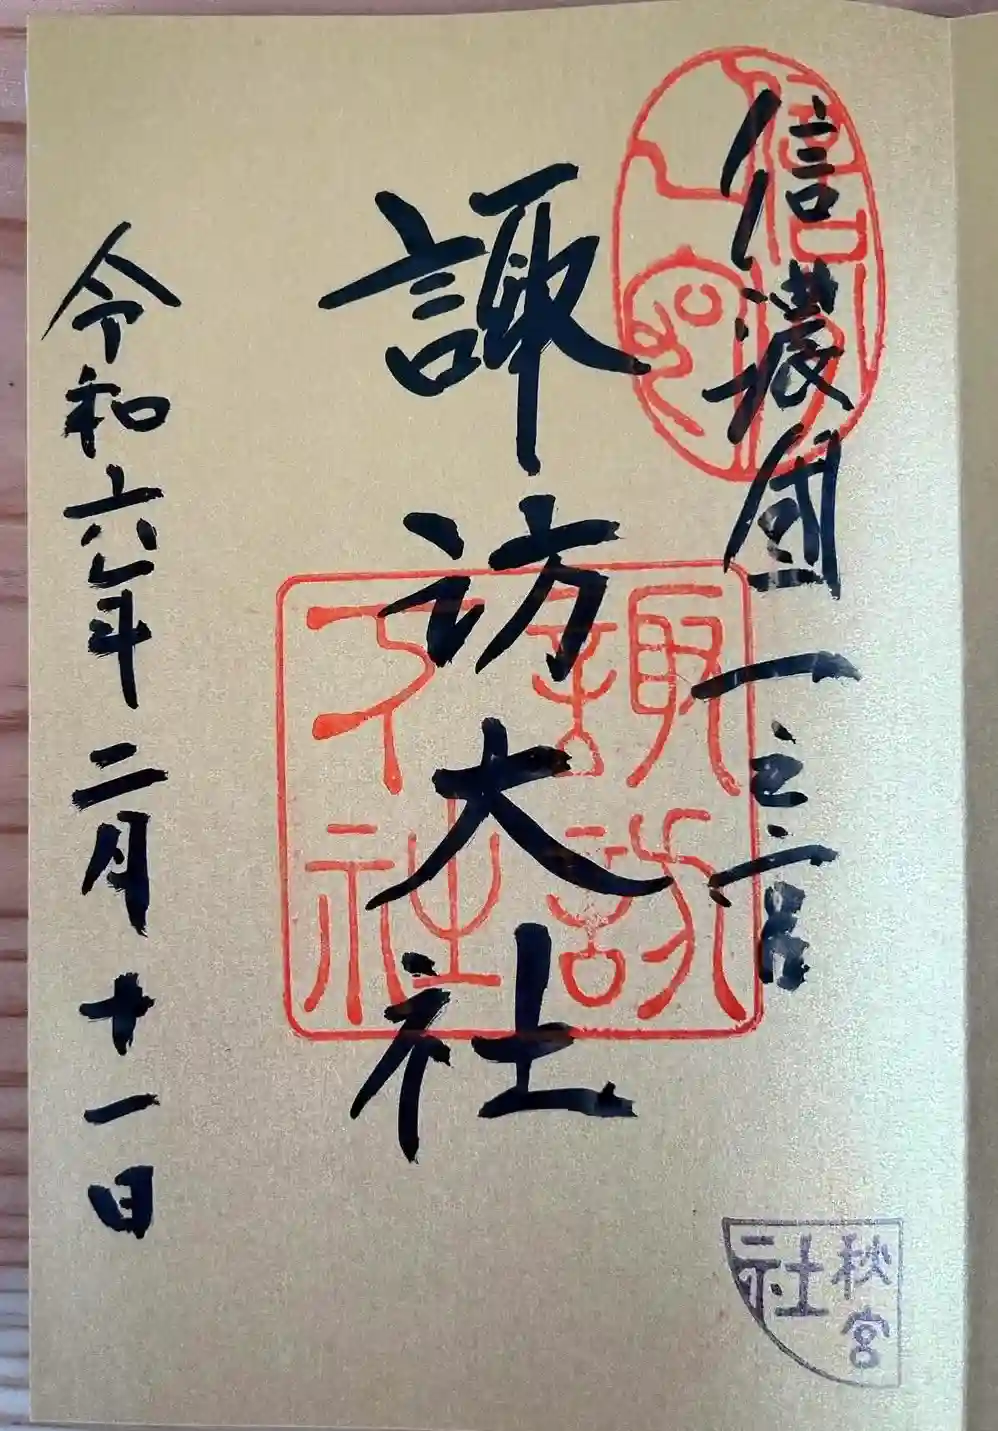 信濃國一之宮
諏訪大社
令和六年二月十一日
諏訪
下社
秋宮
社